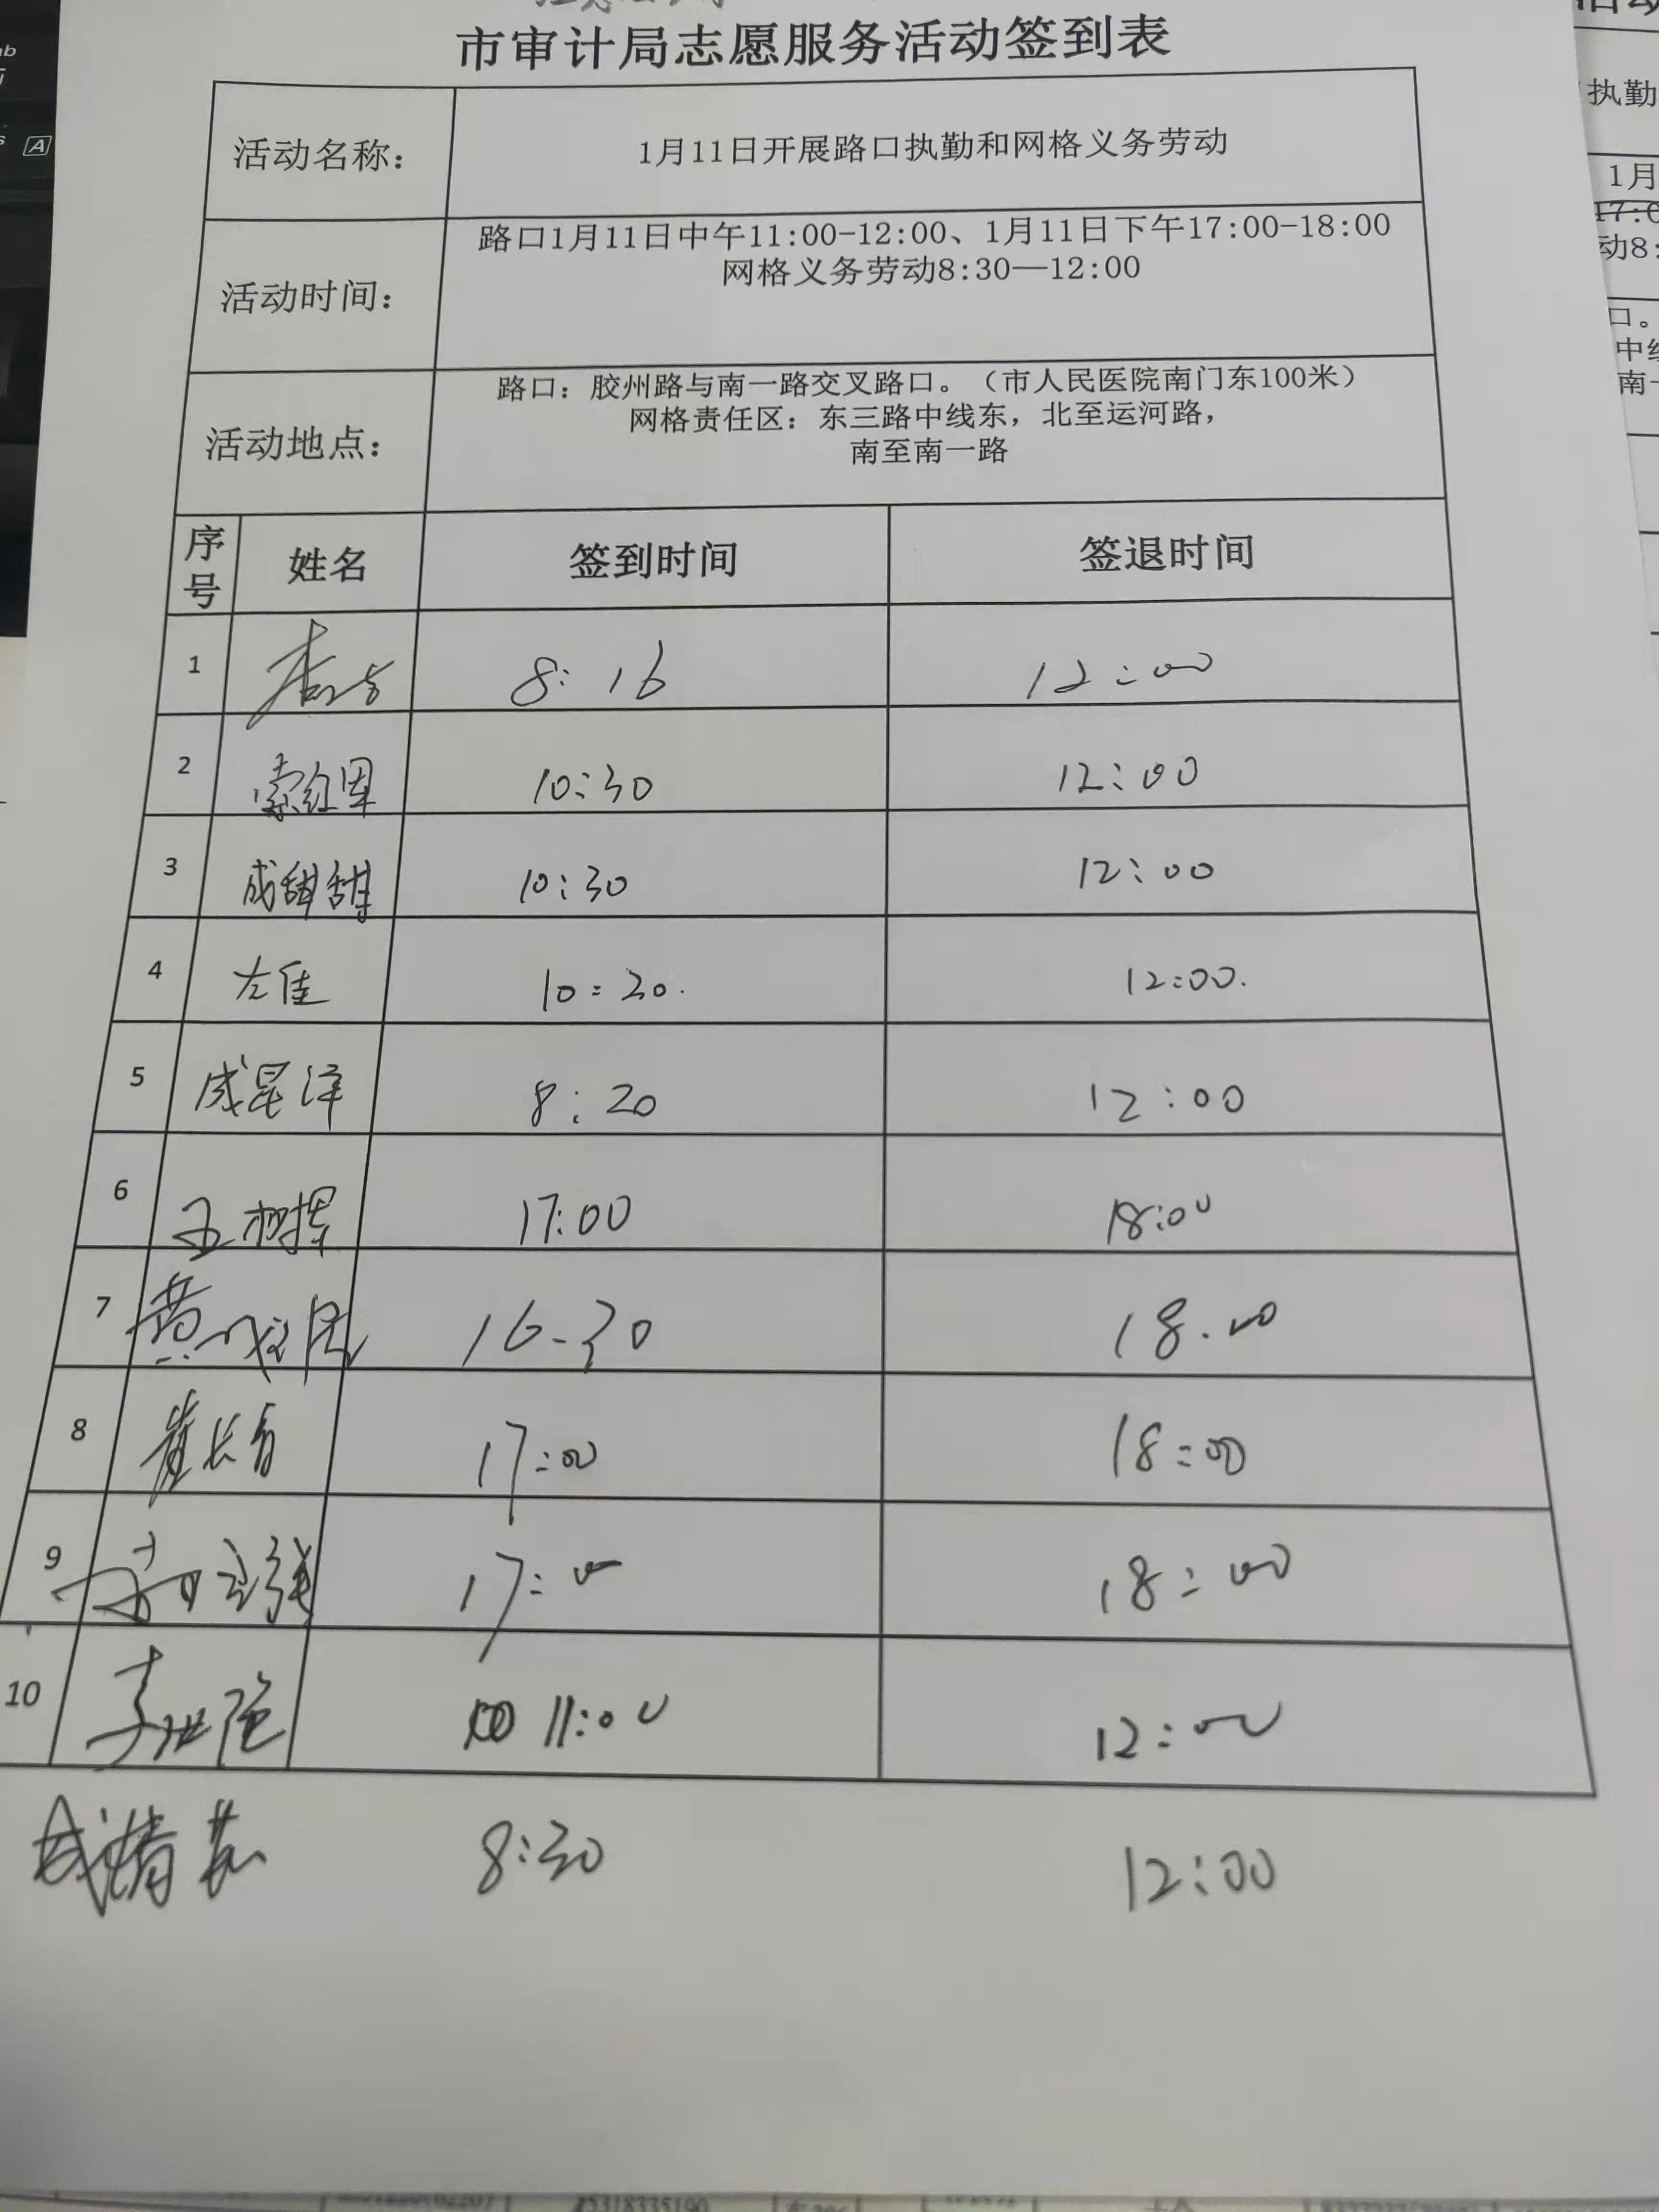 市审计局志愿服务活动签到表
活动名称： 1月11日开展路口执勤和网格义务劳动
路口1月11日中午11:00-12:00、1月11日下午17:00-18:00
活动时间： 网格义务劳动8:30—12:00
路口：胶州路与南一路交叉路口。（市人民医院南门东100米）
活动地点： 网格责任区：东三路中线东，北至运河路，
南至南一路
序号 姓名 签到时间 签退时间
1 8:16 12:00
2 索红军 10:30 12:00
3 成甜甜 10:30 12:00
4 左佳 10:20. 12:00.
5 成昆洋 8:20 12:00
6 17:00 18:00
7 黄 16-30 18.00
8 崔长青 17:00 18:00
9 17:00 18:00
10 11:00 12:00
8:30 12:00
执勤
1月
17:0
动8:
口。
中线
南一